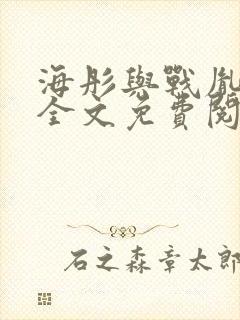 海彤與戰胤
全文免費閱
石之森章太郎